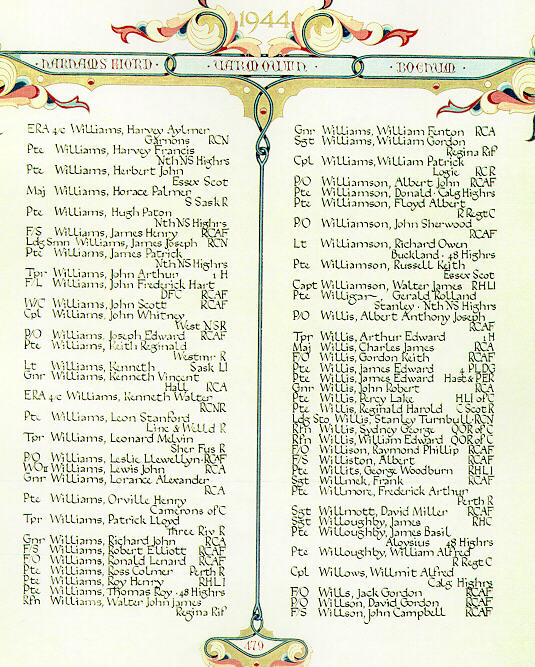 1944
HARDANGS FIORD · YARMOUTH · BOCHUM
ERA 4/c Williams, Harvey Aylmer
Garnons RCN
Pte Williams, Harvey Francis
Nth NS Highrs
Pte Williams, Herbert John
Essex Scot
Maj Williams, Horace Palmer
S Sask R
Pte Williams, Hugh Paton
Nth NS Highrs
F/S Williams, James Henry RCAF
Ldg Smn Williams, James Joseph RCN
Pte Williams, James Patrick
Nth NS Highrs
Tpr Williams, John Arthur 1 H
F/L Williams, John Frederick Hart
DFC RCAF
W/C Williams, John Scott RCAF
Cpl Williams, John Whitney
West NSR
P/O Williams, Joseph Edward RCAF
Pte Williams, Keith Reginald
Westmr R
Lt Williams, Kenneth Sask LI
Gnr Williams, Kenneth Vincent
Hall RCA
ERA 4/c Williams, Kenneth Walter
RCNR
Pte Williams, Leon Stanford
Linc & Welld R
Tpr Williams, Leonard Melvin
Sher Fus R
P/O Williams, Leslie Llewellyn · RCAF
WO II Williams, Lewis John RCA
Gnr Williams, Lorance Alexander
RCA
Pte Williams, Orville Henry
Camerons of C
Tpr Williams, Patrick Lloyd
Three Riv R
Gnr Williams, Richard John RCA
F/S Williams, Robert Elliott RCAF
F/O Williams, Ronald Lenard RCAF
Pte Williams, Ross Colmer Perth R
Pte Williams, Roy Henry RHLI
Pte Williams, Thomas Roy · 48 Highrs
Rfn Williams, Walter John James
Regina Rif
Gnr Williams, William Fenton RCA
Sgt Williams, William Gordon
Regina Rif
Cpl Williams, William Patrick
Logie RCR
P/O Williamson, Albert John RCAF
Pte Williamson, Donald · Calg Highrs
Pte Williamson, Floyd Albert
R Regt C
P/O Williamson, John Sherwood
RCAF
Lt Williamson, Richard Owen
Buckland · 48 Highrs
Pte Williamson, Russell Keith
Essex Scot
Capt Williamson, Walter James RHLI
Pte Willigar, Gerald Rolland
Stanley · Nth NS Highrs
P/O Willis, Albert Anthony Joseph
RCAF
Tpr Willis, Arthur Edward 1 H
Maj Willis, Charles James RCA
F/O Willis, Gordon Keith RCAF
Pte Willis, James Edward 4 PLDG
Pte Willis, James Edward Hast & PER
Gnr Willis, John Robert RCA
Pte Willis, Percy Lake HLI of C
Pte Willis, Reginald Harold C Scot R
Ldg Sto Willis, Stanley Turnbull · RCN
Rfn Willis, Sydney George QOR of C
Rfn Willis, William Edward QOR of C
F/O Willison, Raymond Phillip RCAF
F/S Williston, Albert RCAF
Pte Willits, George Woodburn RHLI
Sgt Willmek, Frank RCAF
Pte Willmore, Frederick Arthur
Perth R
Sgt Willmott, David Miller RCAF
Sgt Willoughby, James RHC
Pte Willoughby, James Basil
Aloysius 48 Highrs
Pte Willoughby, William Alfred
R Regt C
Cpl Willows, Willmit Alfred
Calg Highrs
F/O Wills, Jack Gordon RCAF
P/O Willson, David Gordon RCAF
F/S Willson, John Campbell RCAF
479